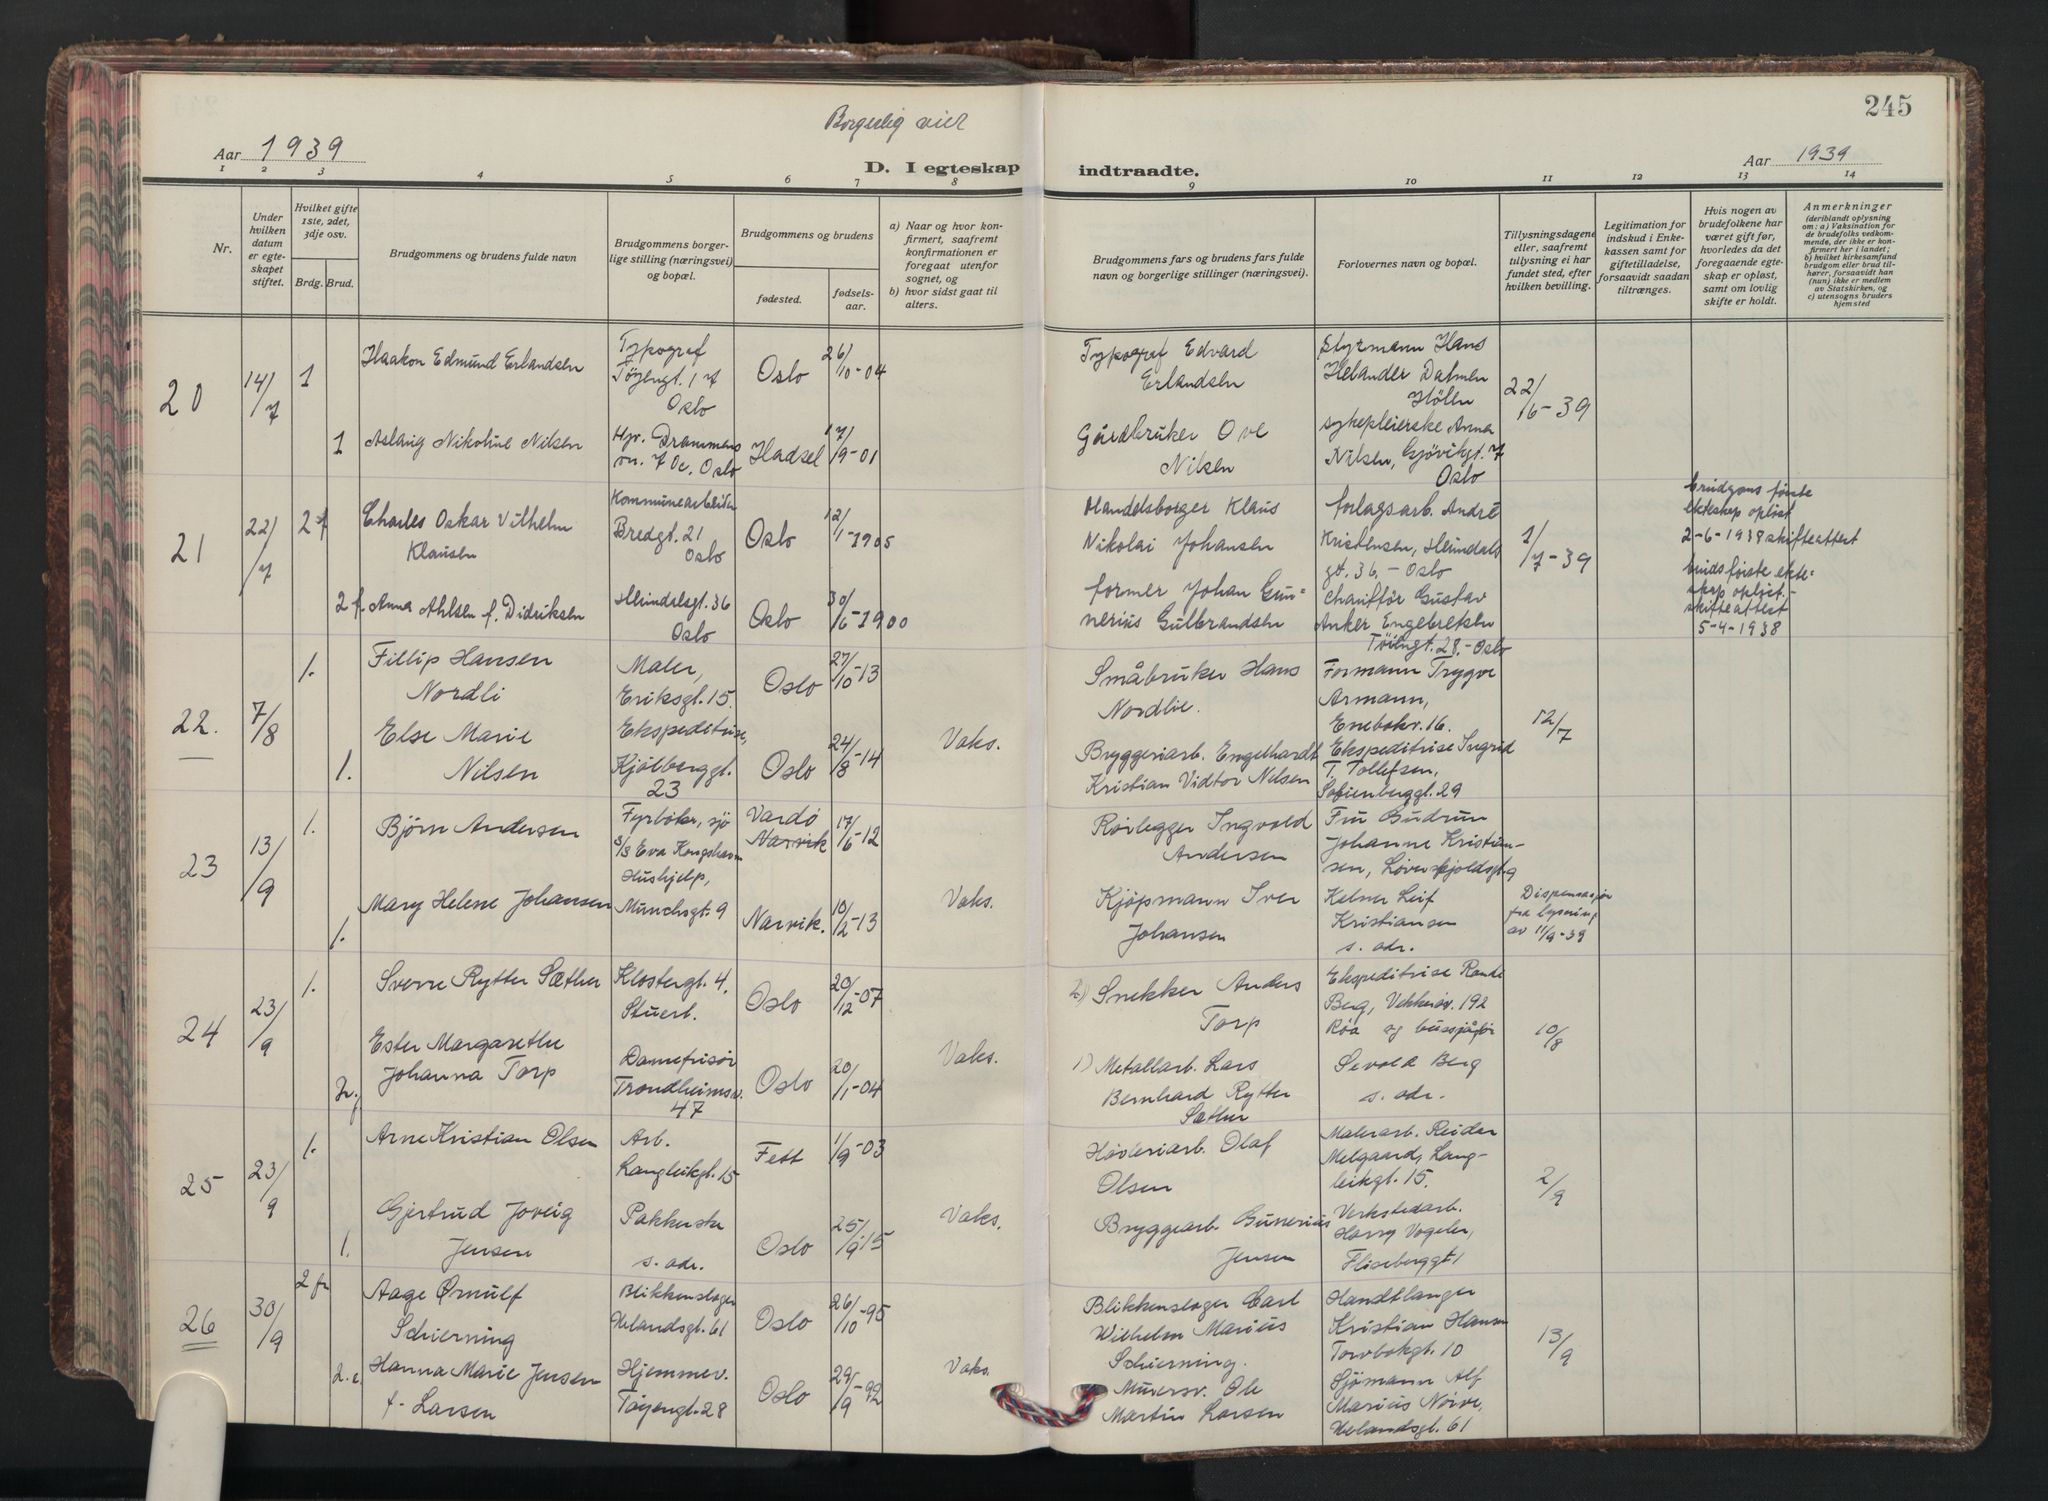 245
Borgerlig viet
Aar 1939
D. I egteskap indtraadte.
Aar 1939
1 2 3 4 5 6 7 8 9 10 11 12 13 14
Nr.
Under hvilken datum er egteskapet stiftet.
Hvilket gifte 1ste, 2det, 3dje osv.
Brdg. Brud.
Brudgommens og brudens fulde navn
Brudgommens borgerlige stilling (næringsvei) og bopæl.
Brudgommens og brudens
fødested.
fødselsaar.
a) Naar og hvor konfirmert, saafremt konfirmationen er foregaat utenfor sognet, og
b) hvor sidst gaat til alters.
Brudgommens fars og brudens fars fulde navn og borgerlige stillinger (næringsvei).
Forlovernes navn og bopæl.
Tillysningsdagene eller, saafremt tillysning ei har fundet sted, efter hvilken bevilling.
Legitimation for indskud i Enkekassen samt for giftetilladelse, forsaavidt saadan tiltrænges.
Hvis nogen av brudefolkene har været gift før, hvorledes da det foregaaende egteskap er opløst, samt om lovlig skifte er holdt.
Anmerkninger
(deriblandt oplysning om: a) Vaksination for de brudefolks vedkommende, der ikke er konfirmert her i landet; b) hvilket kirkesamfund brudgom eller brud tilhører, forsaavidt han (hun) ikke er medlem av Statskirken, og c) utensogns bruders hjemsted
20
14/7
1
Haakon Edmund Erlandsen
Typograf
Tøyengt. 17
Oslo
Oslo
26/10-04
Typograf Edvard
Erlandsen
Styrmann Hans
Helander Dalmen
Hölen
22/6-39
1
Aslaug Nikoline Nilsen
Hp. Drammens
vn. 70c. Oslo
Hadsel
17/9-01
Gårdbruker Ove
Nilsen
sykepleierske Anna
Nilsen, Gjövikgt. 7
Oslo
21
22/7
2 f
Charles Oskar Vilhelm
Klausen
Kommunearbeider
Bredgt. 21
Oslo
Oslo
12/1-1905
Handelsborger Klaus
Nikolai Johansen
forlagsarb. André
Kristensen, Heimdals
gt. 36. - Oslo
1/7-39
brudgoms første
ekteskap opløst
2-6-1938 skifteattest
2 f.
Anna Ahlsen f. Didriksen
Heimdalsgt. 36
Oslo
Oslo
30/6-1900
former Johan Gun-
nerius Gulbrandsen
Chauffør Gustav
Anker Engebretsen
Töiengt. 28. - Oslo
bruds første ekte-
skap opløst. -
skifteattest
5-4-1938
22.
7/8
1.
Fillip Hansen
Nordli
Maler,
Eriksgt. 15.
Oslo
27/10-13
Småbruker Hans
Nordlie.
Formann Trygve
Armann,
Enebakv. 16.
12/7
1.
Else Marie
Nilsen
Ekspeditrise,
Kjölberggt.
23
Oslo
24/8-14
Vaks.
Bryggeriarb. Engelhardt
Kristian Vidtor Nilsen
Ekspeditrise Ingrid
T. Tollefsen,
Sofienberggt. 29
23
13/9
1.
Bjørn Andersen
Fyrböter, sjö
S/S Eva Kongshavn
Vardö
Narvik
17/6-12
Rörlegger Ingvald
Andersen
Fru Gudrun
Johanne Kristian-
sen, Løvenskjoldsgt. 9
1.
Mary Helene Johansen
Hushjelp,
Munchsgt. 9
Narvik.
10/2-13
Vaks.
Kjöpmann Iver
Johansen
Kelner Leif
Kristiansen
s. adr.
Dispensasjon
fra lysning
av 11/9-39
24
23/9
1.
Sverre Rytter Sæther
Klostergt. 4.
Stuerb.
Oslo
20/12-07
2.) Snekker Anders
Torp
Ekspeditrise Rande
Berg, Vekkerøv. 192
Röa og bussjåfør
Sevold Berg
s. adr.
10/8
Ester Margarethe
Johanna Torp
Damefrisör
Trondheimsv.
47
Oslo
20/1-04
Vaks.
1.) Metallarb. Lars
Bernhard Rytter
Sæther
25
23/9
1.
Arne Kristian Olsen
Arb.
Langleikgt. 15
Fett
1/9-03
Høvleriarb. Olaf
Olsen
Malerarb. Reidar
Melgaard, Lang-
leikgt. 15.
2/9
1.
Gjertrud Joveig
Jensen
Pakkerske
s. adr.
Oslo
25/9-15
Vaks.
Bryggearb. Gunerius
Jensen
Verkstedarb.
Harry Vogeler,
Fliseberggt 1
26
30/9
2 fr
Aage Ørnulf
Schierning
Blikkenslager
Helandsgt. 61
Oslo
26/10-95
Blikkenslager Carl
Wilhelm Marius
Schierning.
Handtlanger
Kristian Hansen
Torvbakgt. 10
13/9
2. e.
Hanna Marie Jensen
f. Larsen
Hjemmev.
Töyengt. 28
Oslo
29/9-92
Vaks.
Murersv. Ole
Martin Larsen
Sjömann Alf
Marius Norve,
Helandsgt. 61